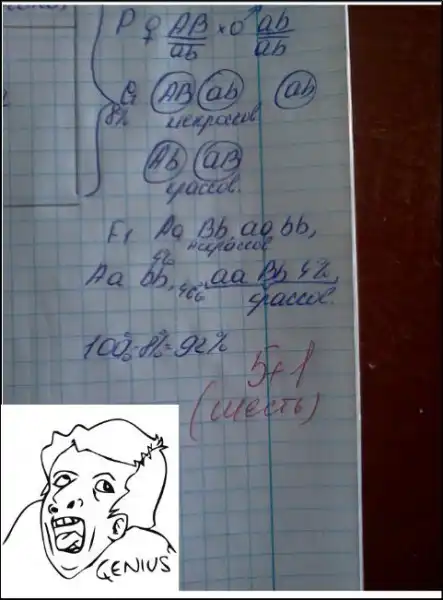 P ♀ AB/ab × ♂ ab/ab
G AB ab ab
8% некроссов.
Ab aB
кроссов.
F₁ Aa Bb, aa bb,
некроссов
Aa bb, aa Bb 4%,
4% 46%
кроссов.
100%-8%=92%
5+1
(шесть)
GENIUS